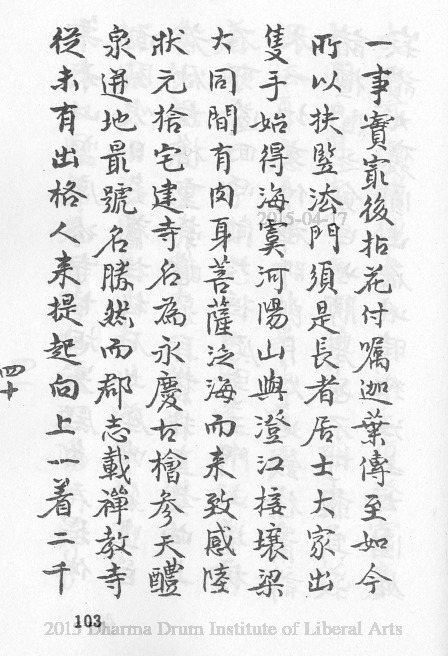 一事實㝡後拈花付囑迦葉傳至如今
所以扶竪法門須是長者居士大家出
隻手始得海虞河陽山與澄江接壤梁
大同間有肉身菩薩泛海而来致感陸
狀元捨宅建寺名為永慶古檜參天醴
泉迸地最號名勝然而郡志載禪教寺
從未有出格人来提起向上一着二千
四十
103
2015-04-17
2015 Dharma Drum Institute of Liberal Arts